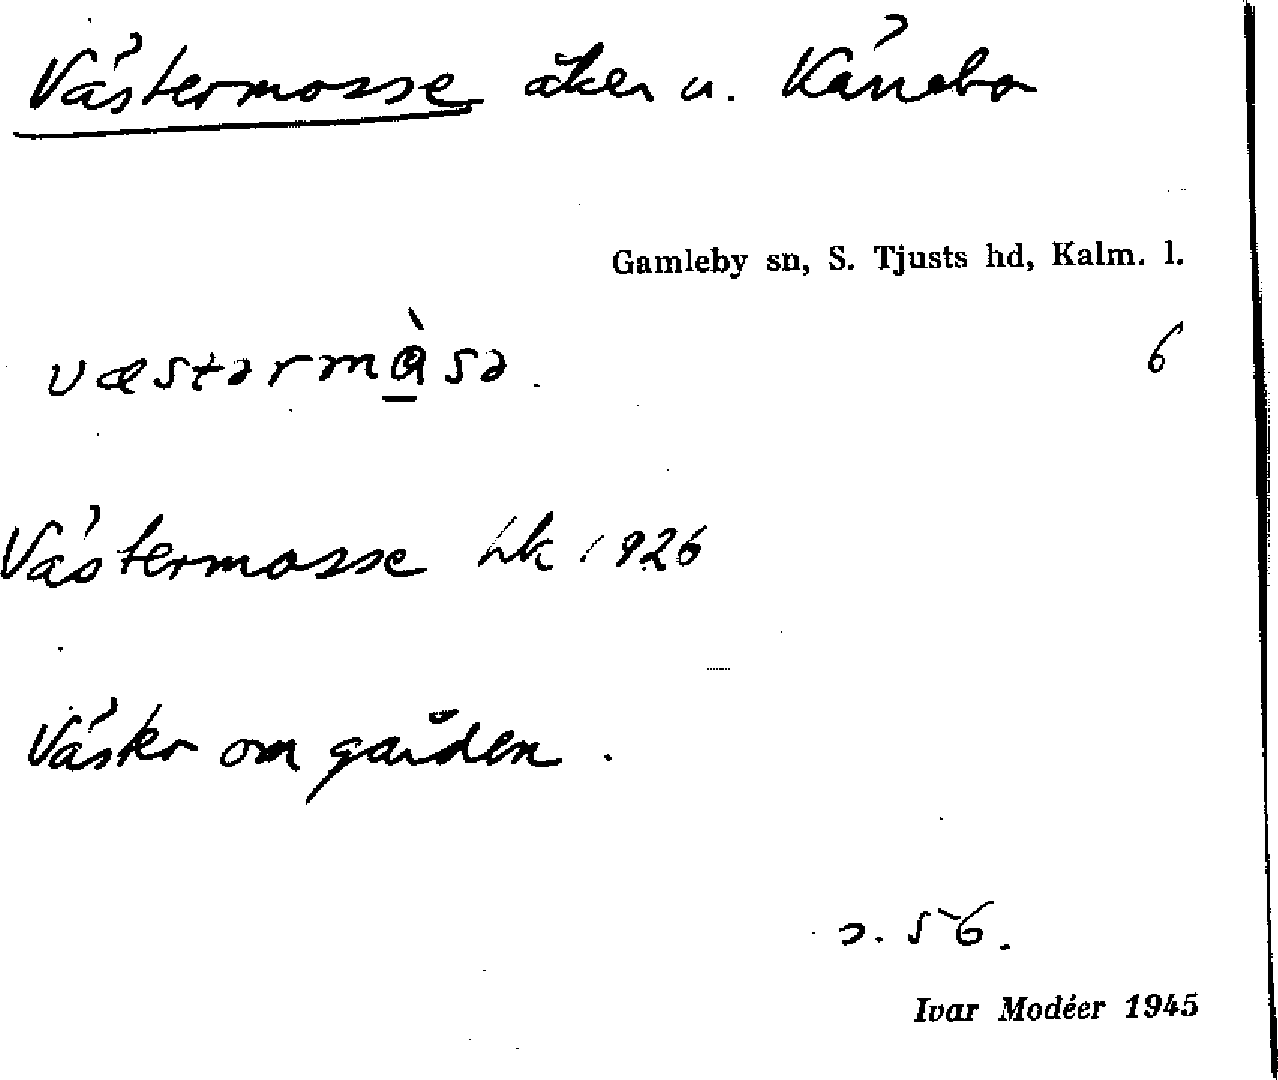 Västermosse åker u. Kärrebo
Gamleby sn, S. Tjusts hd, Kalm. l.
6
væstərmåsə.
Västermosse hk 1926
Väster om gården.
s. 56.
Ivar Modéer 1945